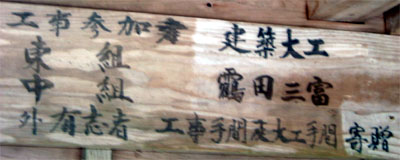 工事参加者
東組
中組
外有志者
建築大工
鶴田三富
工事手間建大工手間寄贈